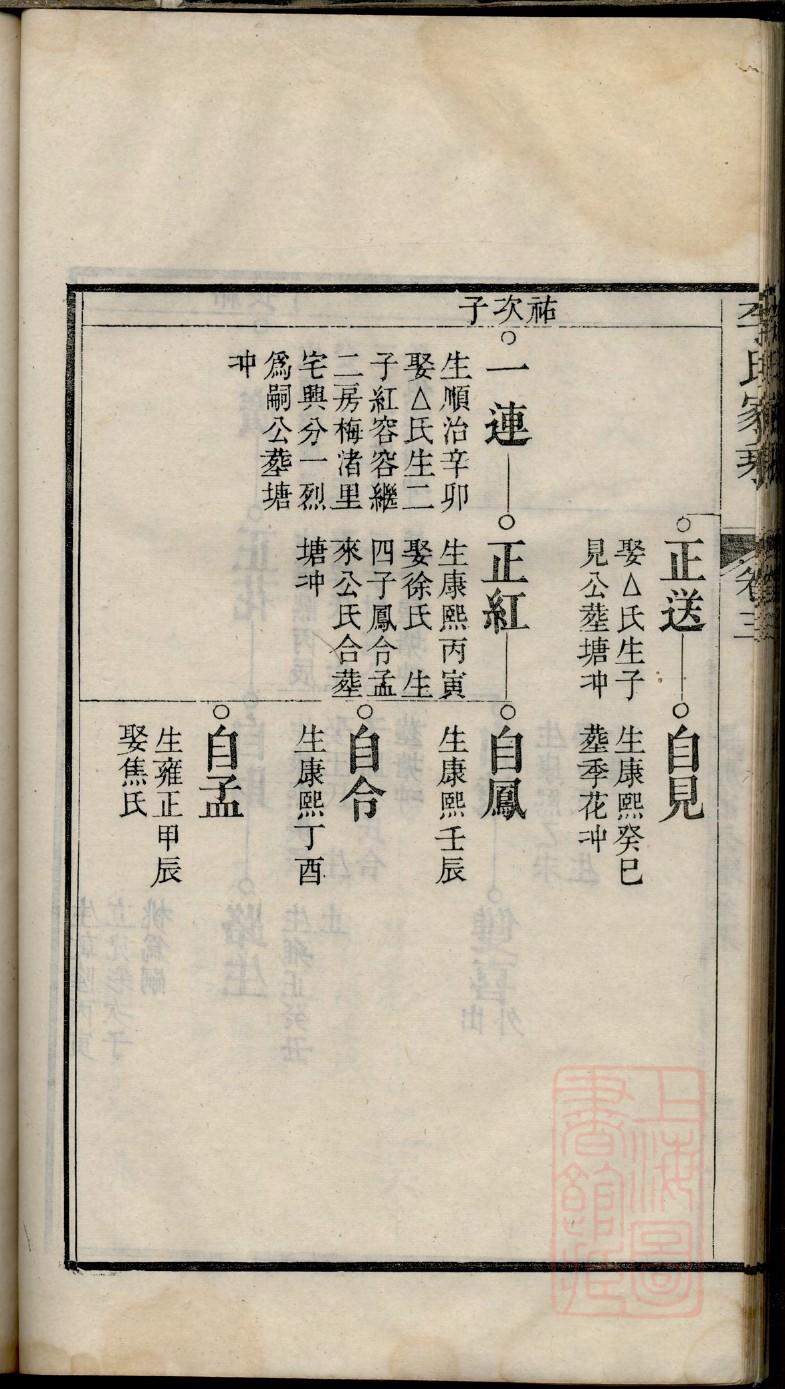 李氏家乘
卷三
正送
娶△氏生子
見公塟塘冲
自見
生康熙癸巳
塟季花冲
祐次子
一連
生順治辛卯
娶△氏生二
子紅容容繼
二房梅渚里
宅興分一烈
爲嗣公塟塘
冲
正紅
生康熙丙寅
娶徐氏 生
四子鳳令孟
來公氏合塟
塘冲
自鳳
生康熙壬辰
自令
生康熙丁酉
自孟
生雍正甲辰
娶焦氏
上海圖
書館藏